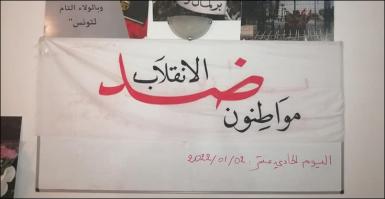 وبالولاء التام
لتونس"
برلمان
مواطنون ضد الانقلاب
اليوم الحادي عشر: 2022/01/02